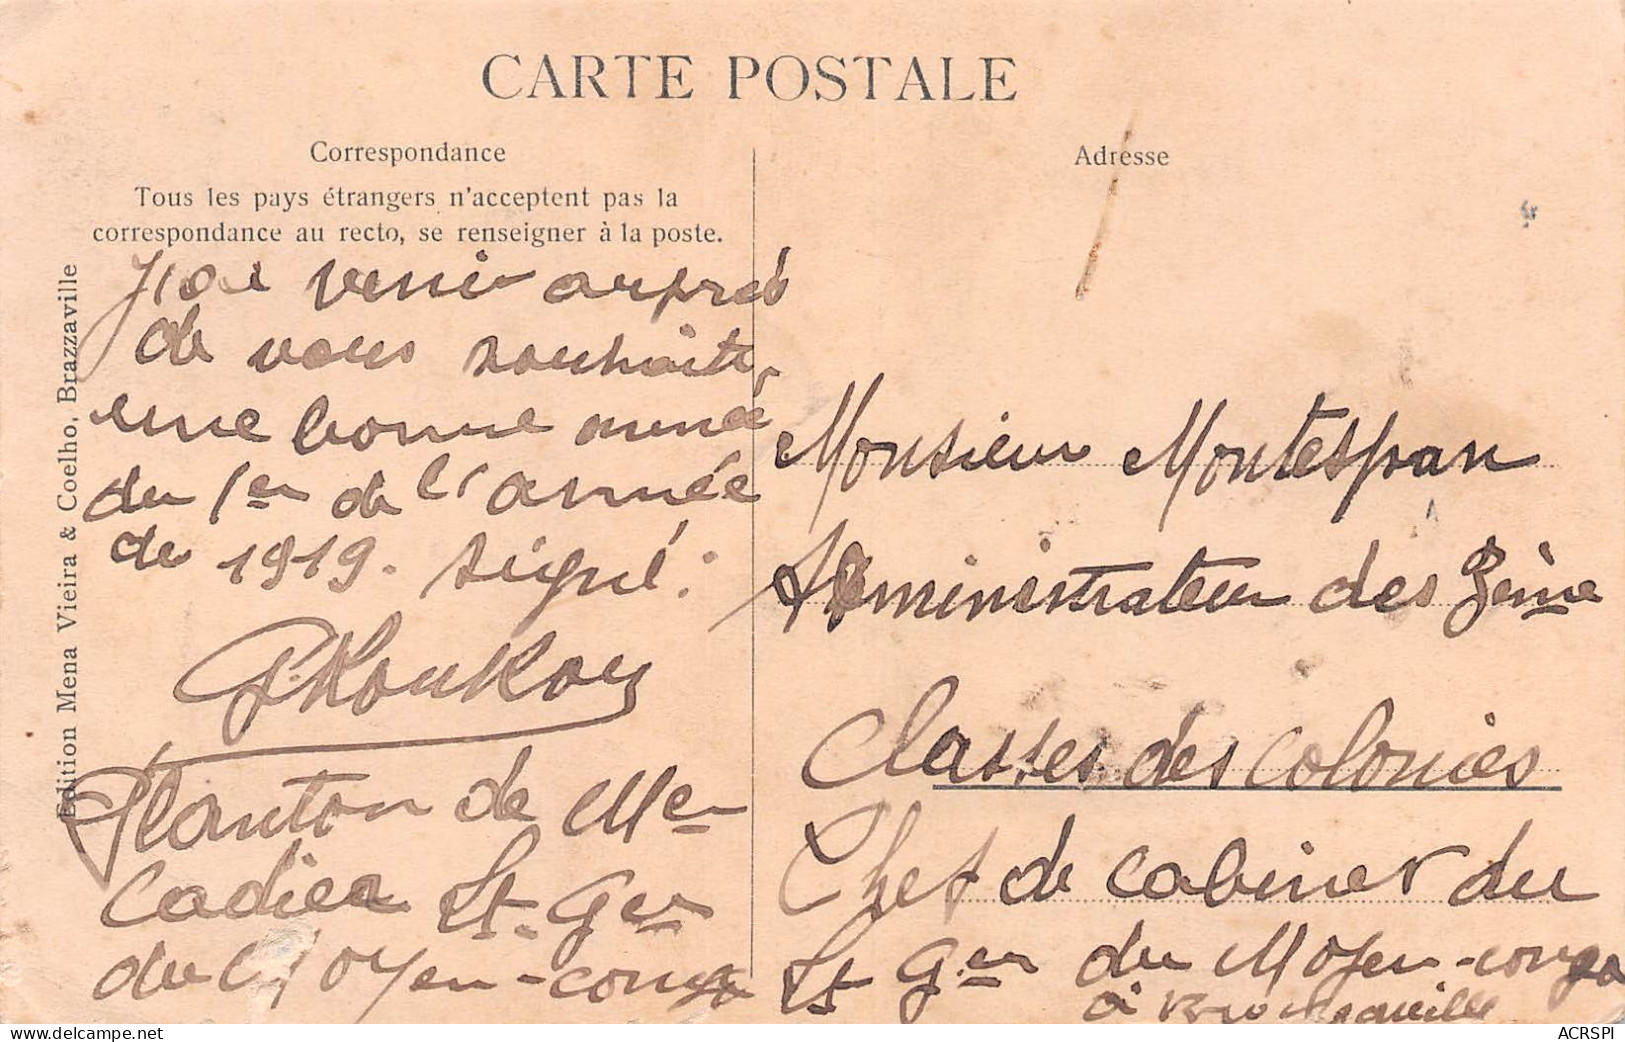 CARTE POSTALE
Correspondance
Tous les pays étrangers n'acceptent pas la
correspondance au recto, se renseigner à la poste.
venir auprès
de vous souhaite
une bonne anné
du 1er de l'année
de 1919. signé:
Planton de Mer
Cadier Lt. Ger
du Moyen-congo
Edition Mena Vieira & Coelho, Brazzaville
Adresse
Monsieur Montespan
Administrateur des
Classes des colonies
Chef de cabinet du
Lt Ger du Moyen-congo
à
ACRSPI